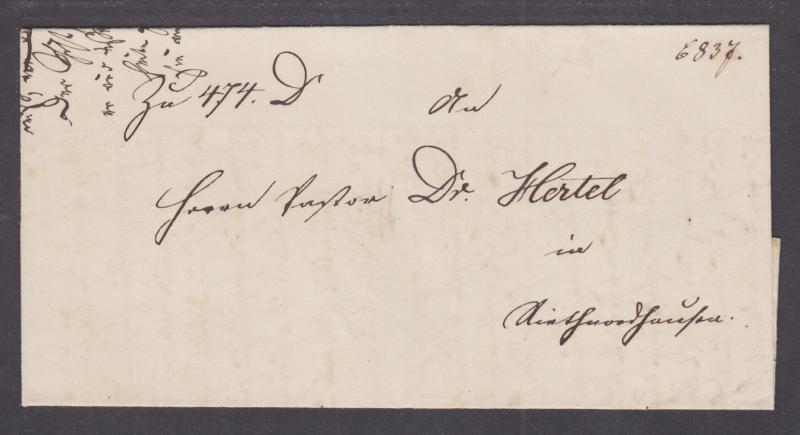 6837.
Zu 474. D
An
Herrn Pastor Dr. Hertel
in
Riethnordhausen.